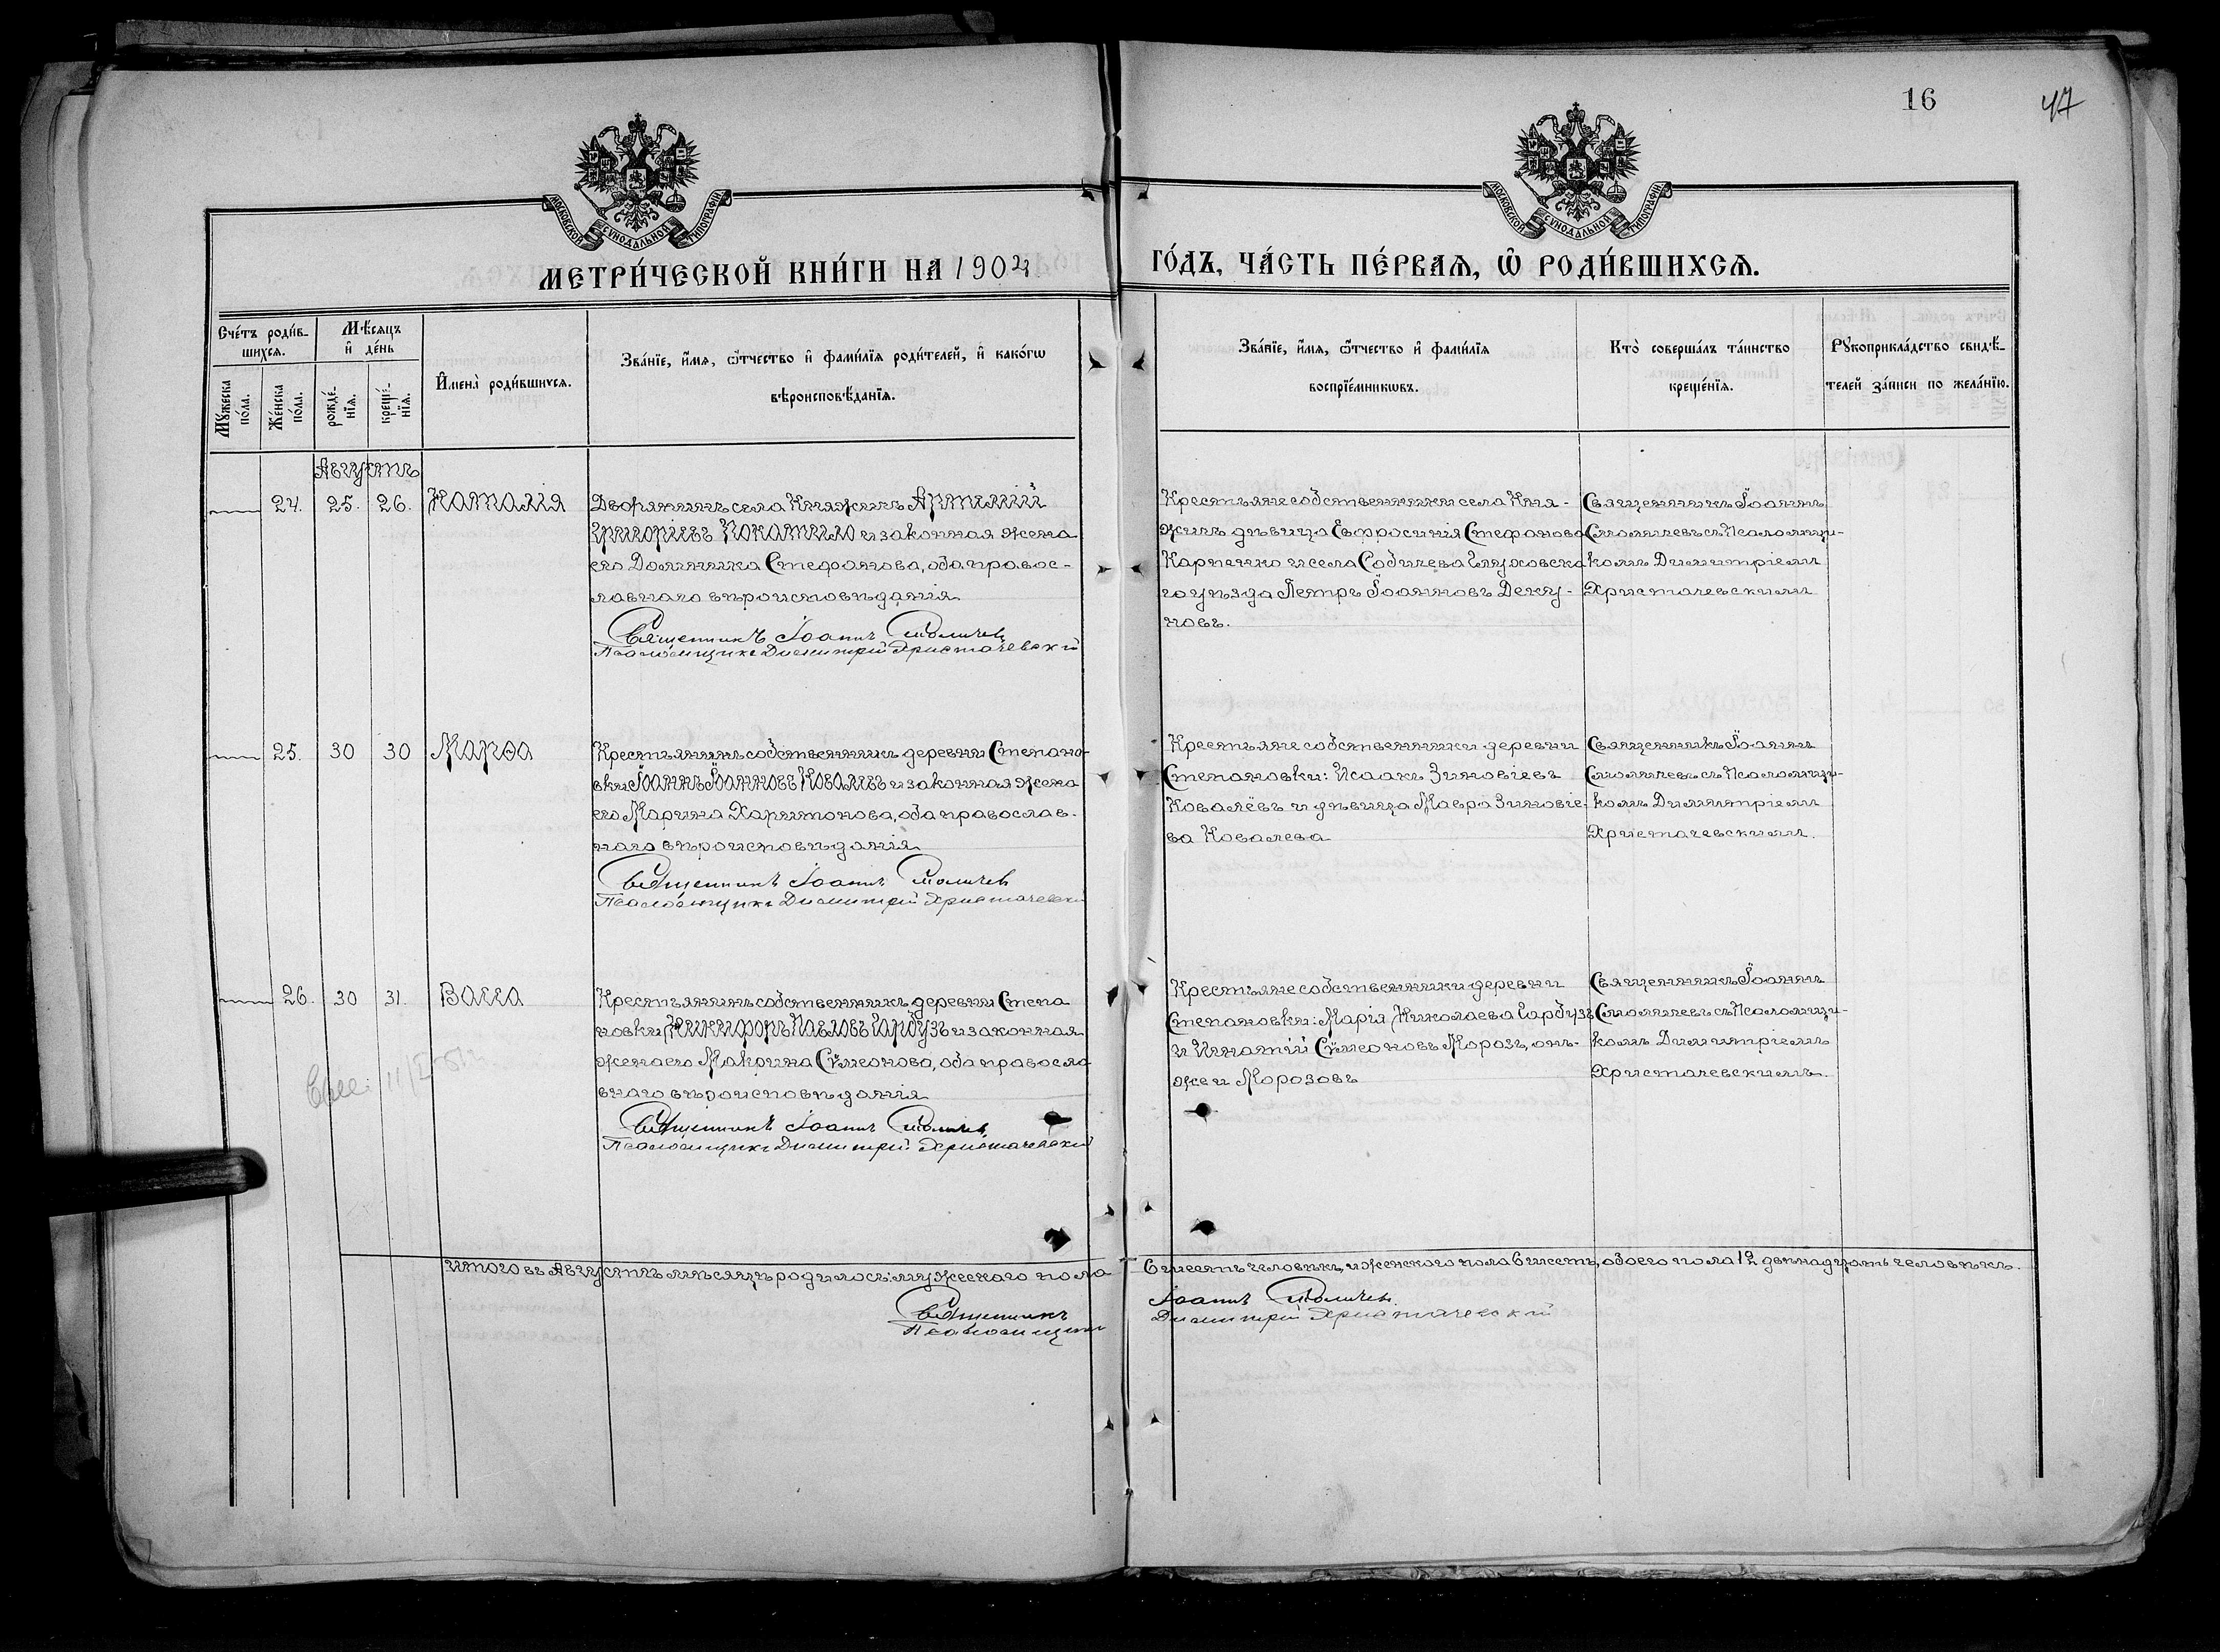 16
47
МОСКОВСКОЙ СѴНОДАЛЬНОЙ ТИПОГРАФІИ
МОСКОВСКОЙ СѴНОДАЛЬНОЙ ТИПОГРАФІИ
МЕТРИ́ЧЕСКОЙ КНИ́ГИ НА 1904
ГО́ДЪ, ЧА́СТЬ ПЕ́РВАѦ, Ѡ҆ РОДИ́ВШИХСѦ.
Сче́тъ роди́в-
шихсѧ.
Мѣ́сѧцъ
и҆ де́нь
Мꙋ́жеска
по́ла.
Же́нска
по́ла.
рожде́-
нїѧ.
креще́-
нїѧ.
И҆мена̀ роди́вшихсѧ.
Зва́нїе, и҆́мѧ, ѻ҆́тчество и҆ фами́лїѧ роди́телей, и҆ како́гѡ
вѣроисповѣ́данїѧ.
Зва́нїе, и҆́мѧ, ѻ҆́тчество и҆ фами́лїѧ
воспрїе́мникѡвъ.
Кто̀ соверша́лъ та́инство
креще́нїѧ.
Рꙋкоприкла́дство свидѣ́-
телей за́писи по жела́нїю.
Августъ
24. 25. 26. Наталія
Дворянинъ села Княжичъ Артемій
Григоріевъ Покатило и законная жена
его Домникка Стефанова, оба правос-
лавнаго вѣроисповѣданія
Священникъ Іоаннъ Смоличевъ
Псаломщикъ Димитрій Христачевскій
Крестьяне собственники села Кня-
жичъ дѣвица Евфросинія Стефанова
Карпенко и села Собичева Глуховска
го уѣзда Петръ Іоанновъ Деку-
новъ.
Священникъ Іоаннъ
Смоличевъ съ Псаломщи-
комъ Димитріемъ
Христачевскимъ
25. 30 30 Марѳа
Крестьянинъ собственникъ деревни Степано-
вки Іоаннъ Іоанновъ Ковалевъ и законная жена
его Марина Харитонова, оба православ-
наго вѣроисповѣданія
Священникъ Іоаннъ Смоличевъ
Псаломщикъ Димитрій Христачевскій
Крестьяне собственники деревни
Степановки: Исаакъ Зиновіевъ
Ковалёвъ и дѣвица Мавра Зиновіе-
ва Ковалева
Священникъ Іоаннъ
Смоличевъ съ Псаломщи-
комъ Димитріемъ
Христачевскимъ.
26. 30 31. Васса
Крестьянинъ собственникъ деревни Степа
новки Никифоръ Павловъ Гарбузъ и законная
жена его Макрина Сѵмеонова, оба правосла
внаго вѣроисповѣданія
Священникъ Іоаннъ Смоличевъ
Псаломщикъ Димитрій Христачевскій
Крестьяне собственники деревни
Степановки: Марія Николаева Гарбузъ
и Игнатій Сѵмеоновъ Морозъ, онъ-
же и Морозовъ
Священникъ Іоаннъ
Смоличевъ съ Псаломщи-
комъ Димитріемъ
Христачевскимъ.
Итого въ Августѣ мѣсяцѣ родилось: мужескаго пола 6 шесть человѣкъ, и женскаго пола 6 шесть, обоего пола 12 двѣнадцать человѣкъ.
Священникъ Іоаннъ Смоличевъ
Псаломщикъ Димитрій Христачевскій